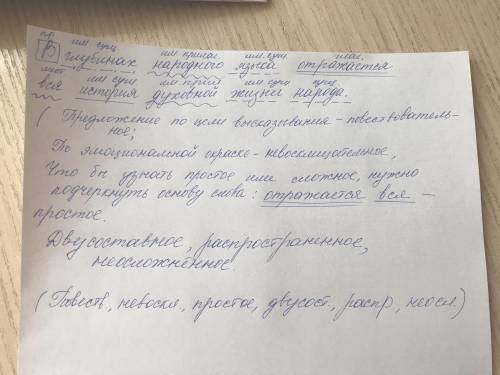 пр. им. сущ. им. прилаг. им. сущ. глаг.
В глубинах народного языка отражается
мест им сущ им. прил им сущ сущ.
вся история духовной жизни народа.
( Предложение по цели высказывания - повествователь-
ное;
По эмоциональной окраске - невосклицательное,
Что бы узнать простое или сложное, нужно
подчеркнуть основу слова: отражается вся -
простое.
Двусоставное, распространенное,
неосложнённое
(Повеств, невоскл, простое, двусост, распр, неосл)